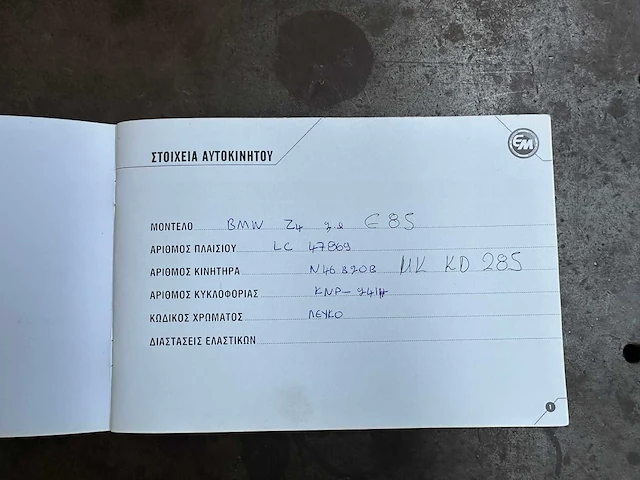 ΣΤΟΙΧΕΙΑ ΑΥΤΟΚΙΝΗΤΟΥ
EM
ΜΟΝΤΕΛΟ BMW Z4 E85
ΑΡΙΘΜΟΣ ΠΛΑΙΣΙΟΥ LC 47869
ΑΡΙΘΜΟΣ ΚΙΝΗΤΗΡΑ N46B20B UK KD 285
ΑΡΙΘΜΟΣ ΚΥΚΛΟΦΟΡΙΑΣ
ΚΩΔΙΚΟΣ ΧΡΩΜΑΤΟΣ ΛΕΥΚΟ
ΔΙΑΣΤΑΣΕΙΣ ΕΛΑΣΤΙΚΩΝ
1